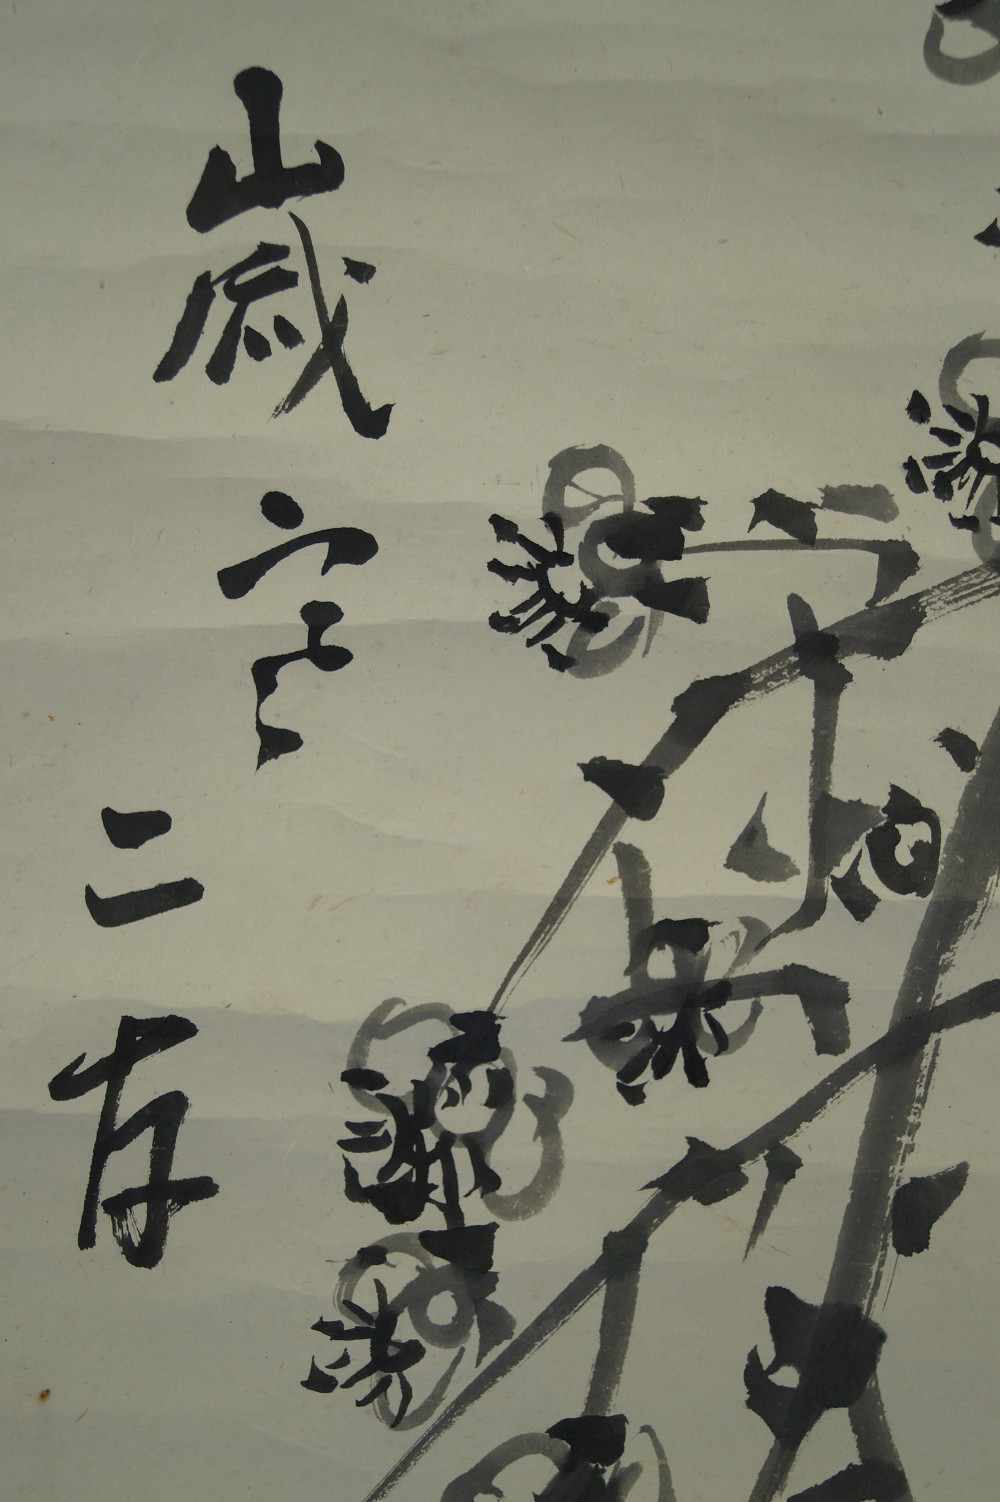 歳寒
二友